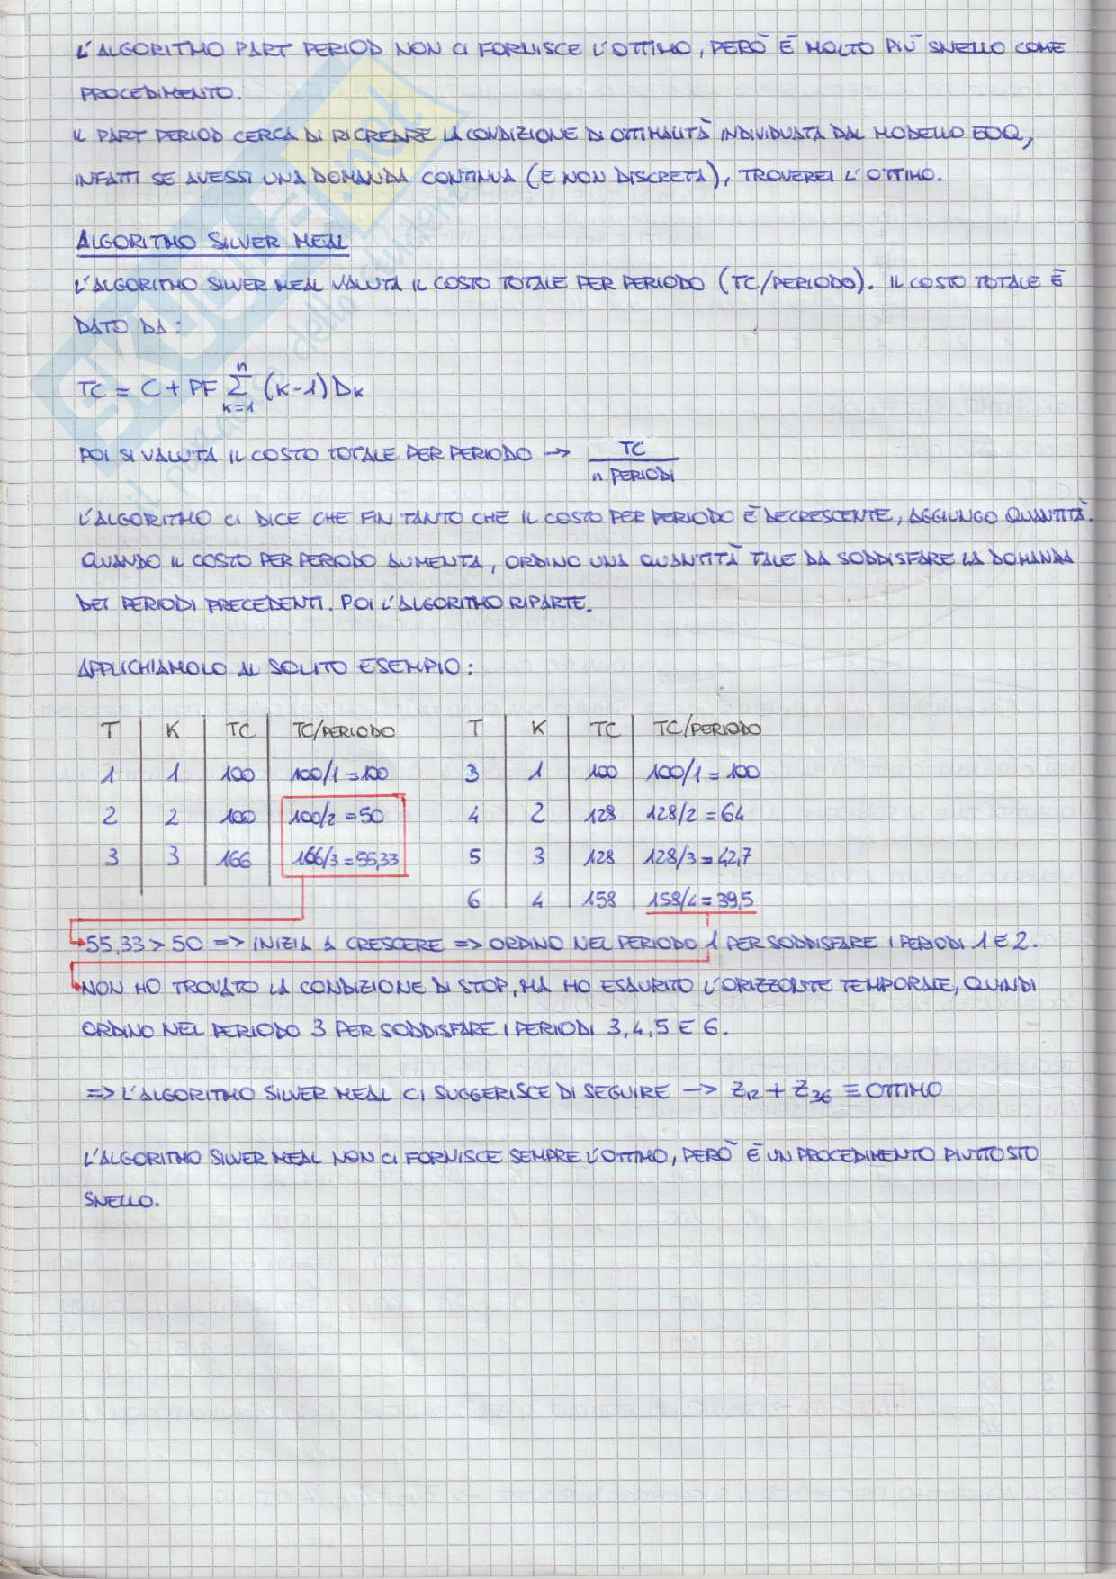 L'ALGORITMO PART PERIOD NON CI FORNISCE L'OTTIMO, PERÒ È MOLTO PIÙ SNELLO COME
PROCEDIMENTO.
IL PART PERIOD CERCA DI RICREARE LA CONDIZIONE DI OTTIMALITÀ INDIVIDUATA DAL MODELLO EOQ,
INFATTI SE AVESSI UNA DOMANDA CONTINUA (E NON DISCRETA), TROVEREI L'OTTIMO.
ALGORITMO SILVER MEAL
L'ALGORITMO SILVER MEAL VALUTA IL COSTO TOTALE PER PERIODO (TC/PERIODO). IL COSTO TOTALE È
DATO DA:
TC = C + PF Σ (K-1) DK
n
K=1
POI SI VALUTA IL COSTO TOTALE PER PERIODO → TC
n PERIODI
L'ALGORITMO CI DICE CHE FIN TANTO CHE IL COSTO PER PERIODO È DECRESCENTE, AGGIUNGO QUANTITÀ.
QUANDO IL COSTO PER PERIODO AUMENTA, ORDINO UNA QUANTITÀ TALE DA SODDISFARE LA DOMANDA
DEI PERIODI PRECEDENTI. POI L'ALGORITMO RIPARTE.
APPLICHIAMOLO AL SOLITO ESEMPIO:
T K TC TC/PERIODO T K TC TC/PERIODO
1 1 100 100/1=100 3 1 100 100/1=100
2 2 100 100/2=50 4 2 128 128/2=64
3 3 166 166/3=55,33 5 3 128 128/3=42,7
6 4 158 158/4=39,5
55,33 > 50 => INIZIA A CRESCERE => ORDINO NEL PERIODO 1 PER SODDISFARE I PERIODI 1 E 2.
NON HO TROVATO LA CONDIZIONE DI STOP, MA HO ESAURITO L'ORIZZONTE TEMPORALE, QUINDI
ORDINO NEL PERIODO 3 PER SODDISFARE I PERIODI 3,4,5 E 6.
=> L'ALGORITMO SILVER MEAL CI SUGGERISCE DI SEGUIRE → Z12 + Z36 ≡ OTTIMO
L'ALGORITMO SILVER MEAL NON CI FORNISCE SEMPRE L'OTTIMO, PERÒ È UN PROCEDIMENTO PIUTTOSTO
SNELLO.